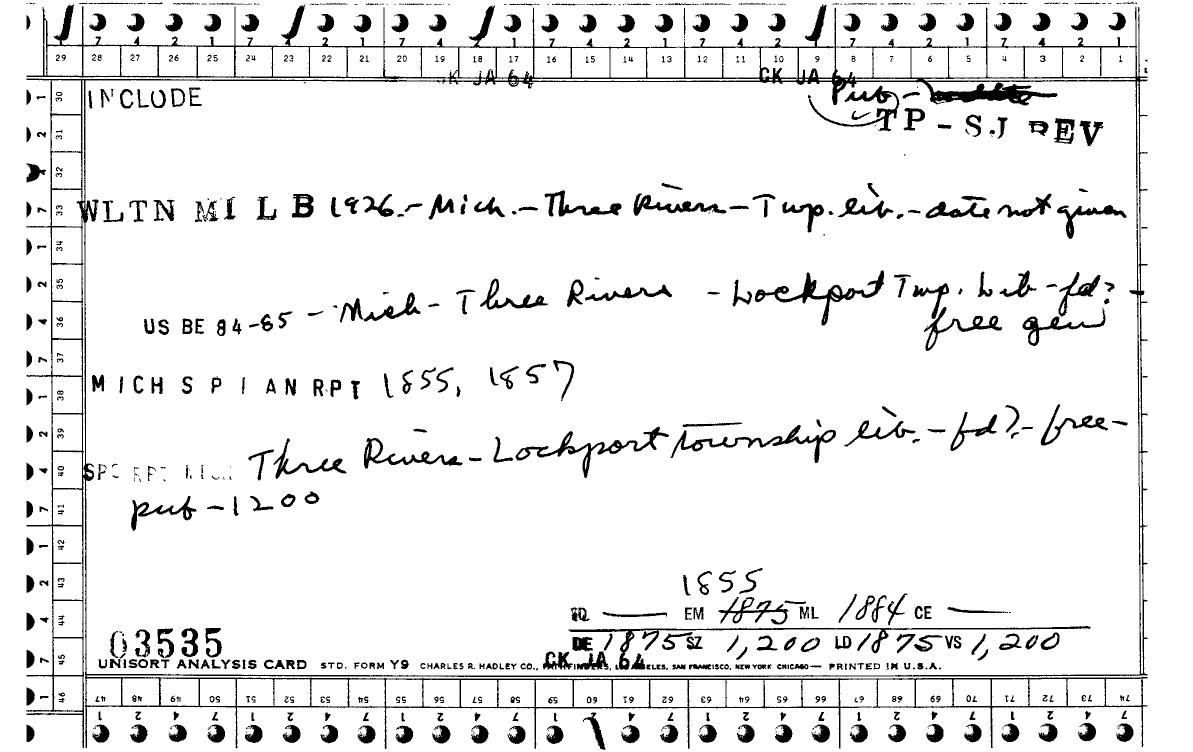 7 4 2 1 7 4 2 1 7 4 2 1 7 4 2 1 7 4 2 1 7 4 2 1 7 4 2 1
29 28 27 26 25 24 23 22 21 20 19 18 17 16 15 14 13 12 11 10 9 8 7 6 5 4 3 2 1
CK JA 64 CK JA 64
INCLUDE Pub -
TP - SJ REV
WLTN MI L B 1926. - Mich. - Three Rivers - Twp. lib. - date not given
US BE 84-85 - Mich - Three Rivers - Lockport Twp. Lib - fd? -
free gen
MICH S P I AN RPT 1855, 1857
SPC RPT MICH Three Rivers - Lockport township lib. - fd? - free -
pub - 1200
1855
EM 1875 ML 1884 CE
03535 DE 1875 SZ 1,200 LD 1875 VS 1,200
CK JA 64
UNISORT ANALYSIS CARD STD. FORM Y9 CHARLES R. HADLEY CO., PATHFINDERS, LOS ANGELES, SAN FRANCISCO, NEW YORK CHICAGO — PRINTED IN U.S.A.
30 31 32 33 34 35 36 37 38 39 40 41 42 43 44 45 46
1 2 4 7 1 2 4 7 1 2 4 7 1 2 4 7 1
47 48 49 50 51 52 53 54 55 56 57 58 59 60 61 62 63 64 65 66 67 68 69 70 71 72 73 74
1 2 4 7 1 2 4 7 1 2 4 7 1 2 4 7 1 2 4 7 1 2 4 7 1 2 4 7